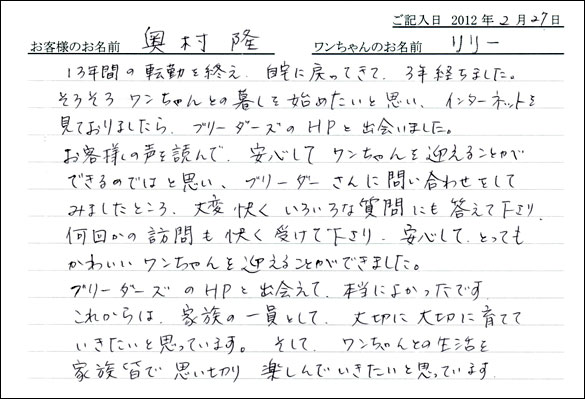 ご記入日 2012年2月27日
お客様のお名前 奥村 隆 ワンちゃんのお名前 リリー
13年間の転勤を終え、自宅に戻ってきて、3年経ちました。
そろそろワンちゃんとの暮しを始めたいと思い、インターネットを
見ておりましたら、ブリーダーズのHPと出会いました。
お客様の声を読んで、安心してワンちゃんを迎えることが
できるのではと思い、ブリーダーさんに問い合わせをして
みましたところ、大変快くいろいろな質問にも答えて下さり、
何回かの訪問も快く受けて下さり、安心して、とっても
かわいいワンちゃんを迎えることができました。
ブリーダーズのHPと出会えて、本当によかったです
これからは、家族の一員として、大切に大切に育てて
いきたいと思っています。そして、ワンちゃんとの生活を
家族皆で思い切り楽しんでいきたいと思っています